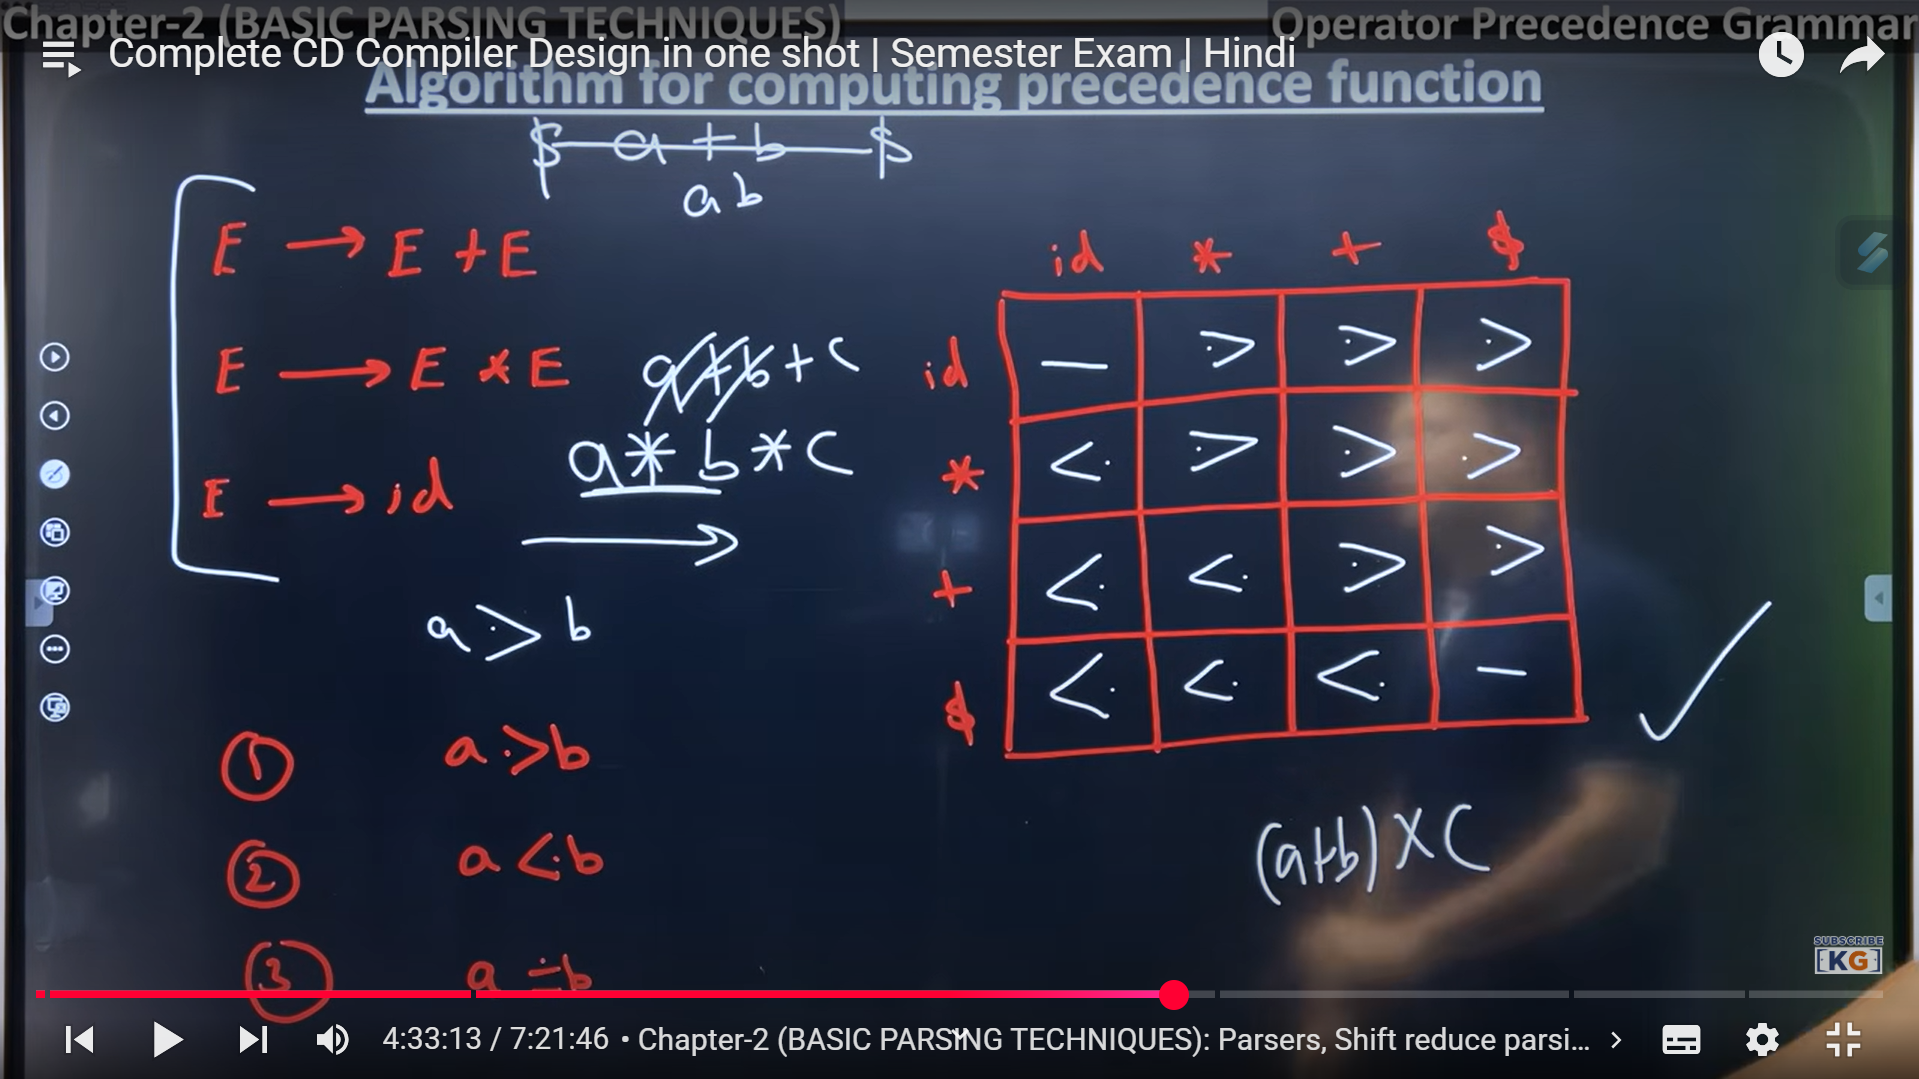 Chapter-2 (BASIC PARSING TECHNIQUES)
Operator Precedence Grammar
Complete CD Compiler Design in one shot | Semester Exam | Hindi
Algorithm for computing precedence function
$ a + b $
a b
E → E + E
E → E * E
E → id
a + b + c
a * b * c
→
a ⋗ b
① a ⋗ b
② a ⋖ b
③ a ≐ b
id * + $
id — ⋗ ⋗ ⋗
* ⋖ ⋗ ⋗ ⋗
+ ⋖ ⋖ ⋗ ⋗
$ ⋖ ⋖ ⋖ —
✓
(a+b) X C
SUBSCRIBE
KG
4:33:13 / 7:21:46 • Chapter-2 (BASIC PARSING TECHNIQUES): Parsers, Shift reduce parsi... ›